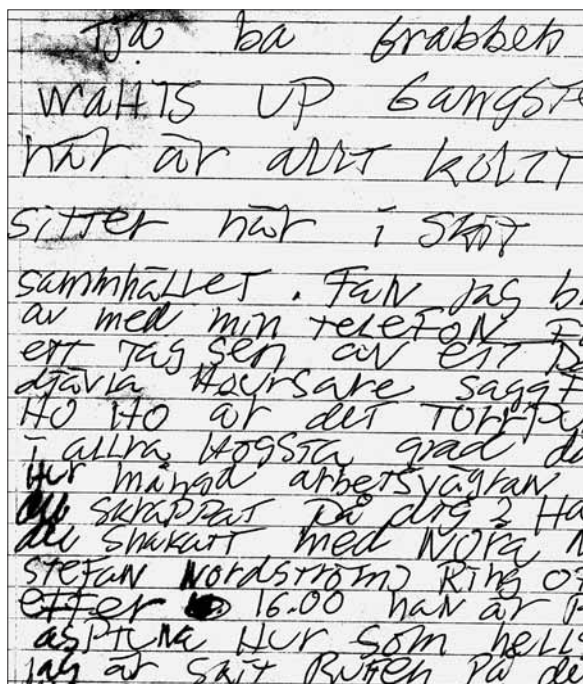 Tja ba Grabben
WAHTS UP GANGSTE
här är allt
sitter här i skit
sammhället. Fan jag b
av med min TELEFON Fö
ett tag sen av ett
djävla
HO HO är det
i allra högsta grad då
Hur många arbetsvägran
du skrappat på dig? Ha
du snakatt med Nora
STEFAN NORDSTRÖM) Ring
efter 16.00 han är
ASPTUNA Hur som hells
jag är skit på de